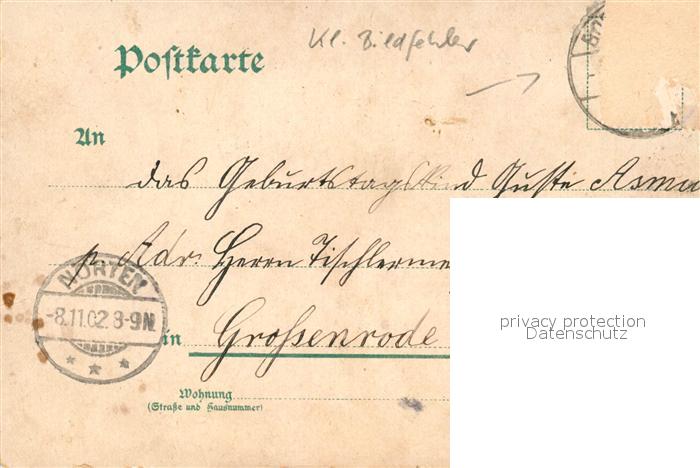 Kl. Bildfehler
Postkarte
An
das Geburtstagskind Guste Asma
p. Adr. Herrn Tischlerme
NÖRTEN
-8.11.02 8-9N
* * *
in Grossenrode
Wohnung
(Straße und Hausnummer)
privacy protection
Datenschutz